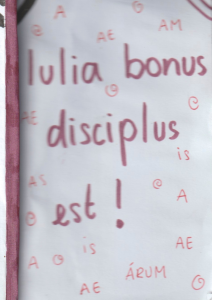 A AM
AE
Iulia bonus
AE
disciplus
is
AS A
est!
is AE
A ÁRUM
AE